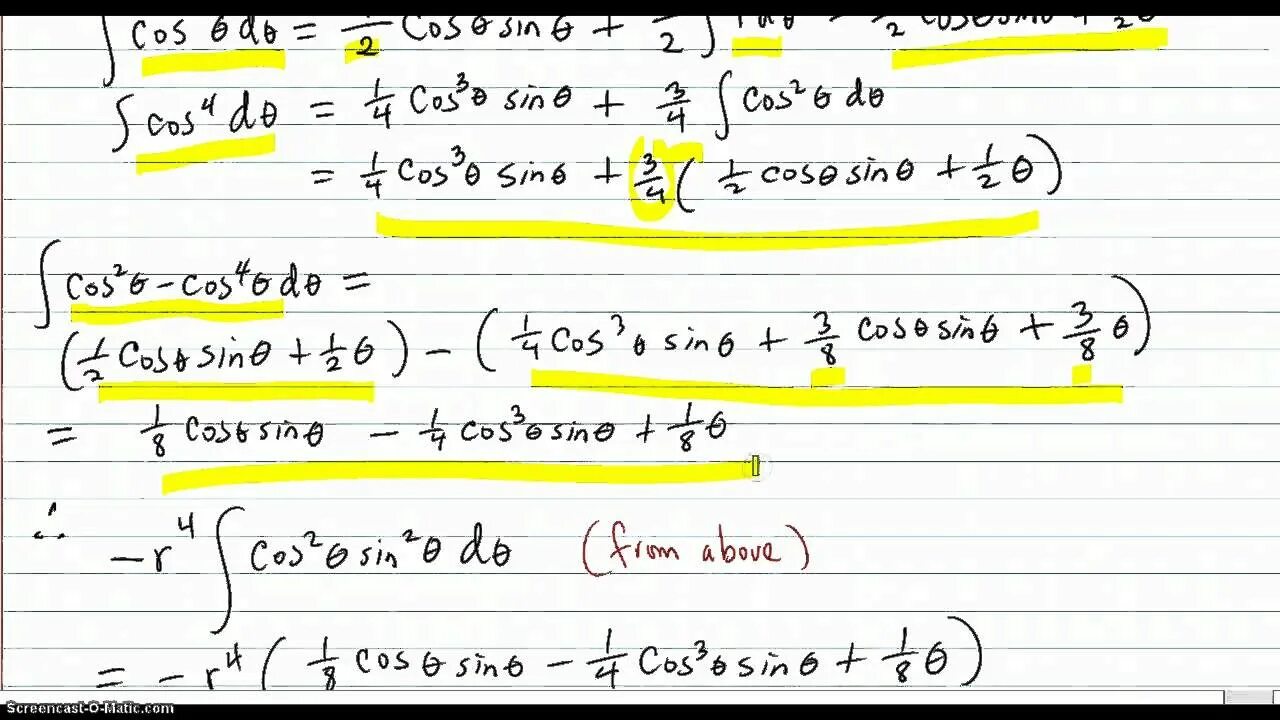 ∫ cos θ dθ = 1/2 cosθ sinθ + 1/2 ∫ 1 dθ = 1/2 cosθ sinθ + 1/2 θ
∫ cos⁴ dθ = 1/4 cos³θ sinθ + 3/4 ∫ cos²θ dθ
= 1/4 cos³θ sinθ + 3/4 ( 1/2 cosθ sinθ + 1/2 θ )
∫ cos²θ - cos⁴θ dθ =
( 1/2 cosθ sinθ + 1/2 θ ) - ( 1/4 cos³θ sinθ + 3/8 cosθ sinθ + 3/8 θ )
= 1/8 cosθ sinθ - 1/4 cos³θ sinθ + 1/8 θ
∴ -r⁴ ∫ cos²θ sin²θ dθ (from above)
= -r⁴ ( 1/8 cosθ sinθ - 1/4 cos³θ sinθ + 1/8 θ )
Screencast-O-Matic.com